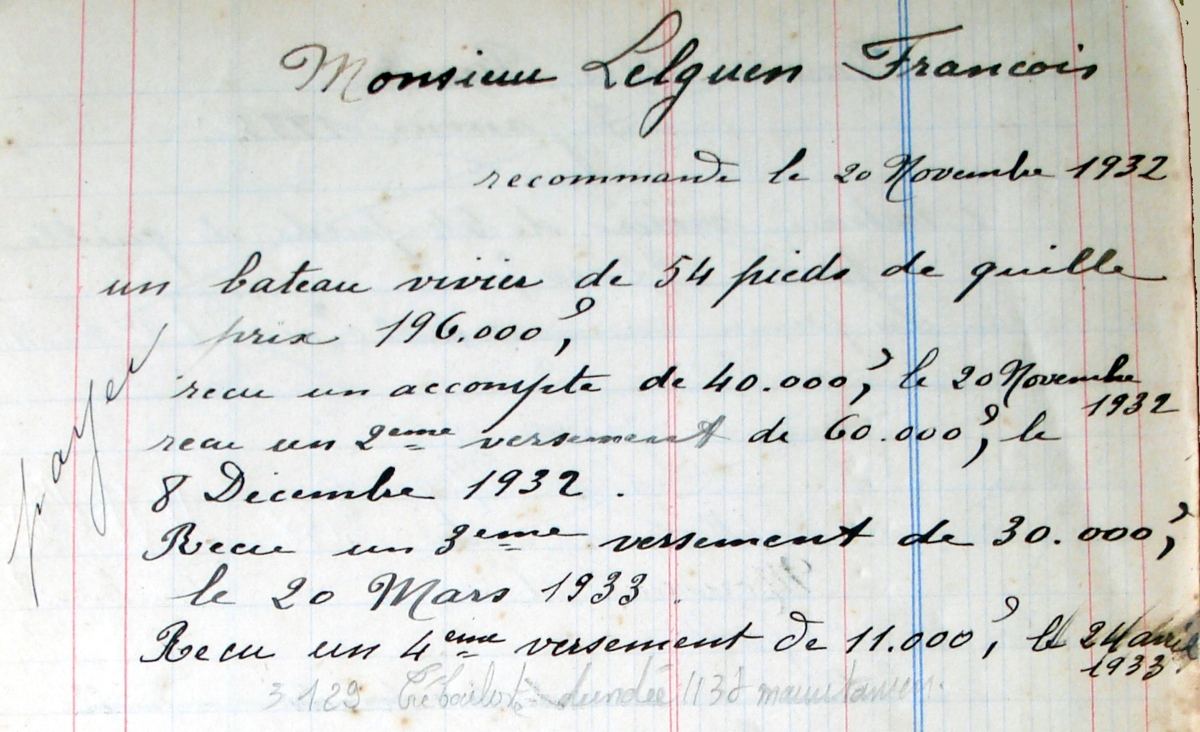 Monsieur Lelguen Francois
recommande le 20 Novembre 1932
un bateau vivier de 54 pieds de quille
prix 196.000,
recu un accompte de 40.000, le 20 Novembre
1932
recu un 2eme versement de 60.000, le
8 Decembre 1932.
Recu un 3eme versement de 30.000,
le 20 Mars 1933.
Recu un 4eme versement de 11.000, le 24 avril
1933.
dundée mauritanien.
payer